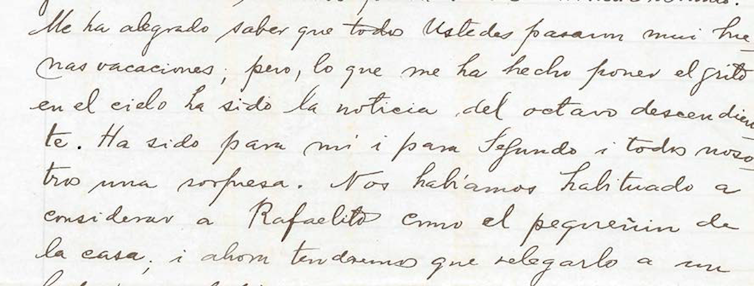 Me ha alegrado saber que todos Ustedes pasaron mui bue-
nas vacaciones; pero, lo que me ha hecho poner el grito
en el cielo ha sido la noticia del octavo descendien-
te. Ha sido para mí i para Segundo i todos noso-
tros una sorpresa. Nos habíamos habituado a
considerar a Rafaelito como el pequeñin de
la casa; i ahora tendremos que relegarlo a un